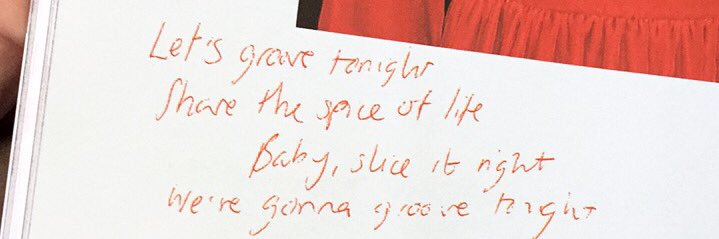 Let's groove tonight
Share the spice of life
Baby, slice it right
We're gonna groove tonight